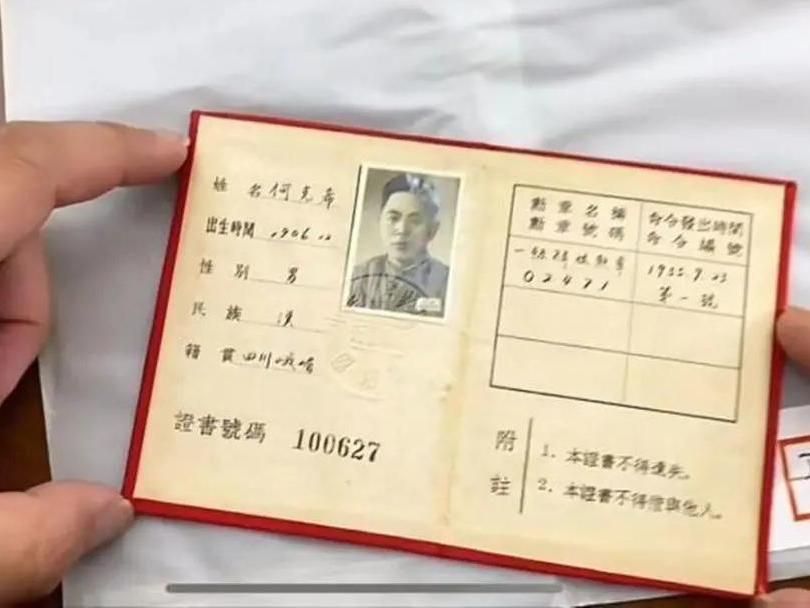 姓名 何克希
出生時間 1906.12
性別 男
民族 漢
籍貫 四川峨嵋
證書號碼 100627
勳章名稱
勳章號碼
命令發出時間
命令編號
一級
02471
1955.9.23
第一號
附註
1. 本證書不得遺失。
2. 本證書不得借與他人。